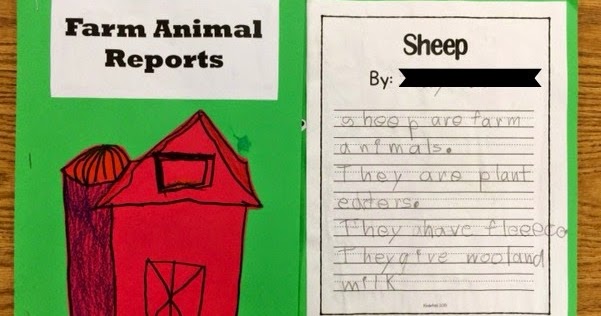 Farm Animal
Reports
Sheep
By:
sheep are farm
animals.
They are plant
eaters.
They ahave fleece
They give wool and
milk